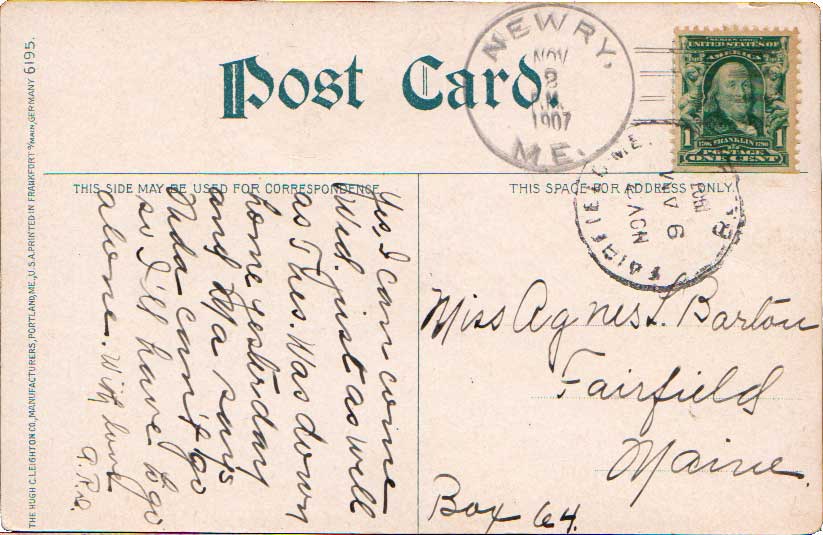 Post Card.
NEWRY,
NOV
2
1907
M.E.
SERIES 1902
UNITED STATES OF
AMERICA
1 1
1706 FRANKLIN 1790
POSTAGE
ONE CENT
FAIRFIELD ME.
NOV
9 AM
1907
THIS SIDE MAY BE USED FOR CORRESPONDENCE
THIS SPACE FOR ADDRESS ONLY.
Yes, I can come
Wed. just as well
as Thes. Was down
home yesterday
and Ma says
Onda can't go
so I'll have to go
alone. With love
Miss Agnes L. Barton
Fairfield
Maine.
Box 64.
THE HUGH C. LEIGHTON CO., MANUFACTURERS, PORTLAND, ME., U.S.A. PRINTED IN FRANKFORT o/MAIN, GERMANY 6195.